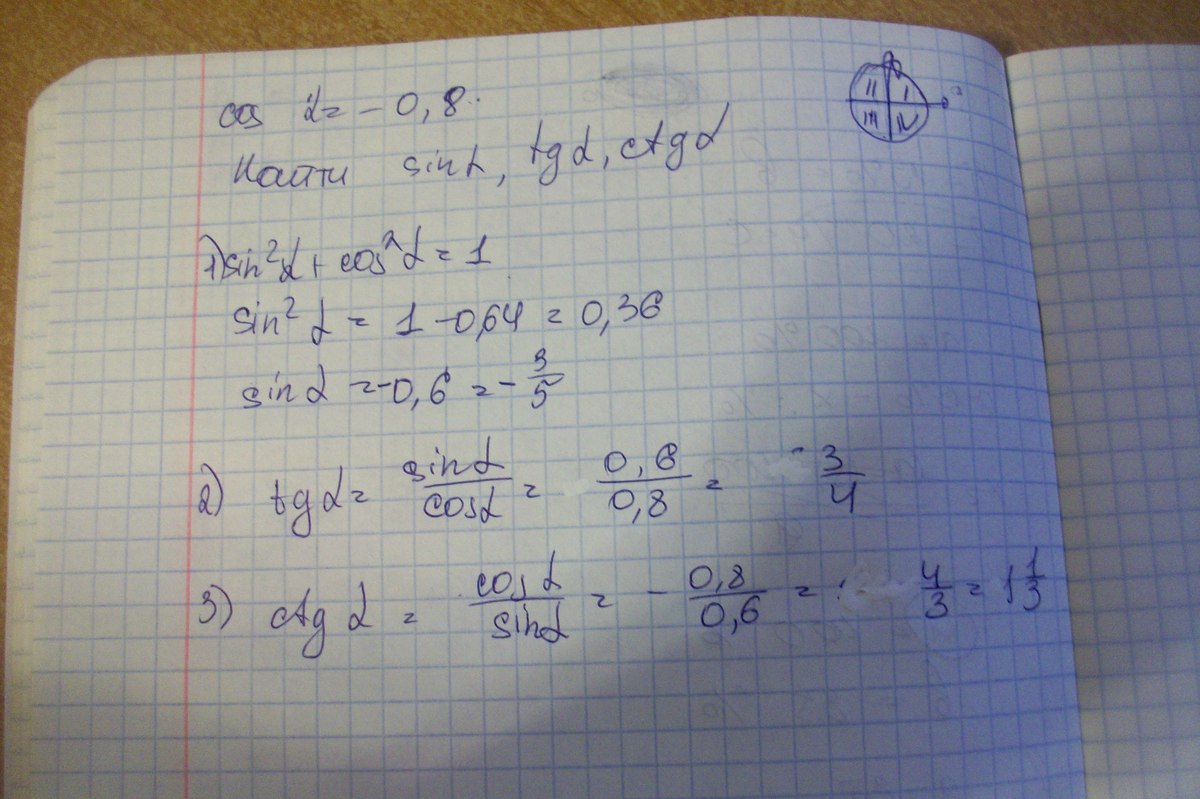 cos α = -0,8.
II I
III IV
Найти sin α, tg α, ctg α
1) sin²α + cos²α = 1
sin² α = 1 - 0,64 = 0,36
sin α = -0,6 = -3/5
2) tg α = sin α/cos α = 0,6/0,8 = 3/4
3) ctg α = cos α/sin α = - 0,8/0,6 = 4/3 = 1 1/3